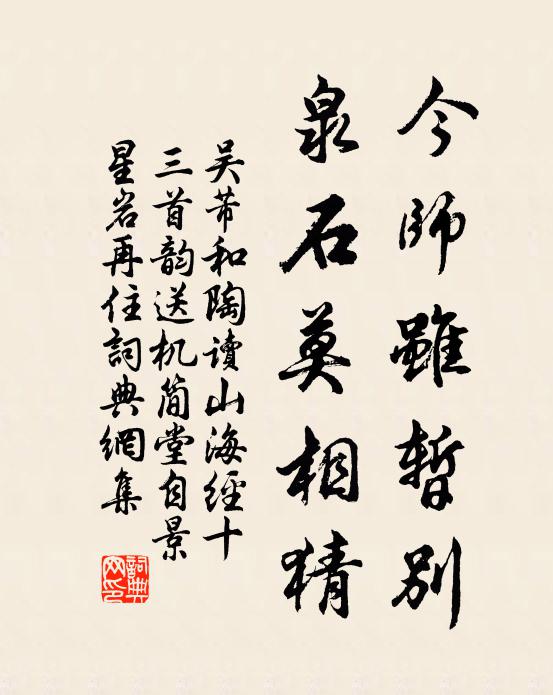 今師雖暫別
泉石莫相猜
吴芾和陶讀山海經十
三首韵送机簡堂自景
星岩再住詞典網集
詞典网印